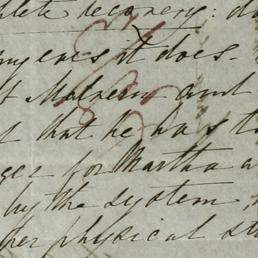 plete recovery: do
my eves it does.
Malvern and
that he has to
for Martha a
by the system,
her physical st